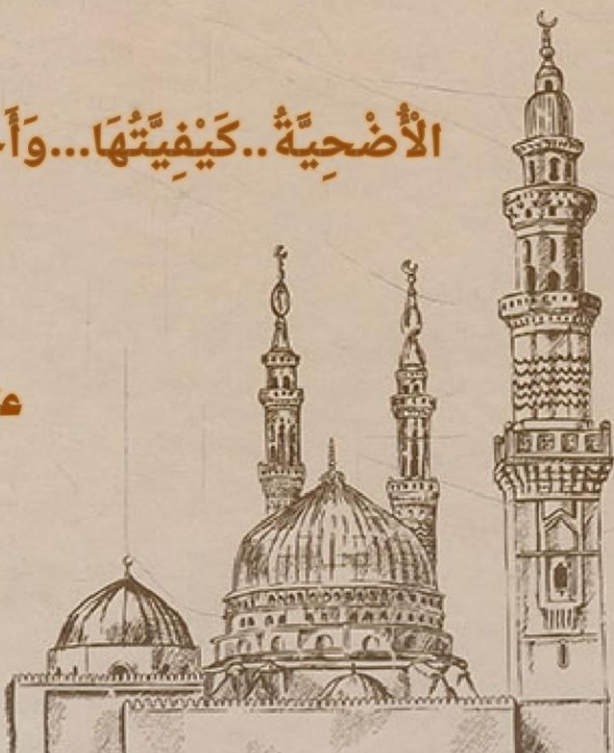 الْأُضْحِيَّةُ..كَيْفِيَّتُهَا...